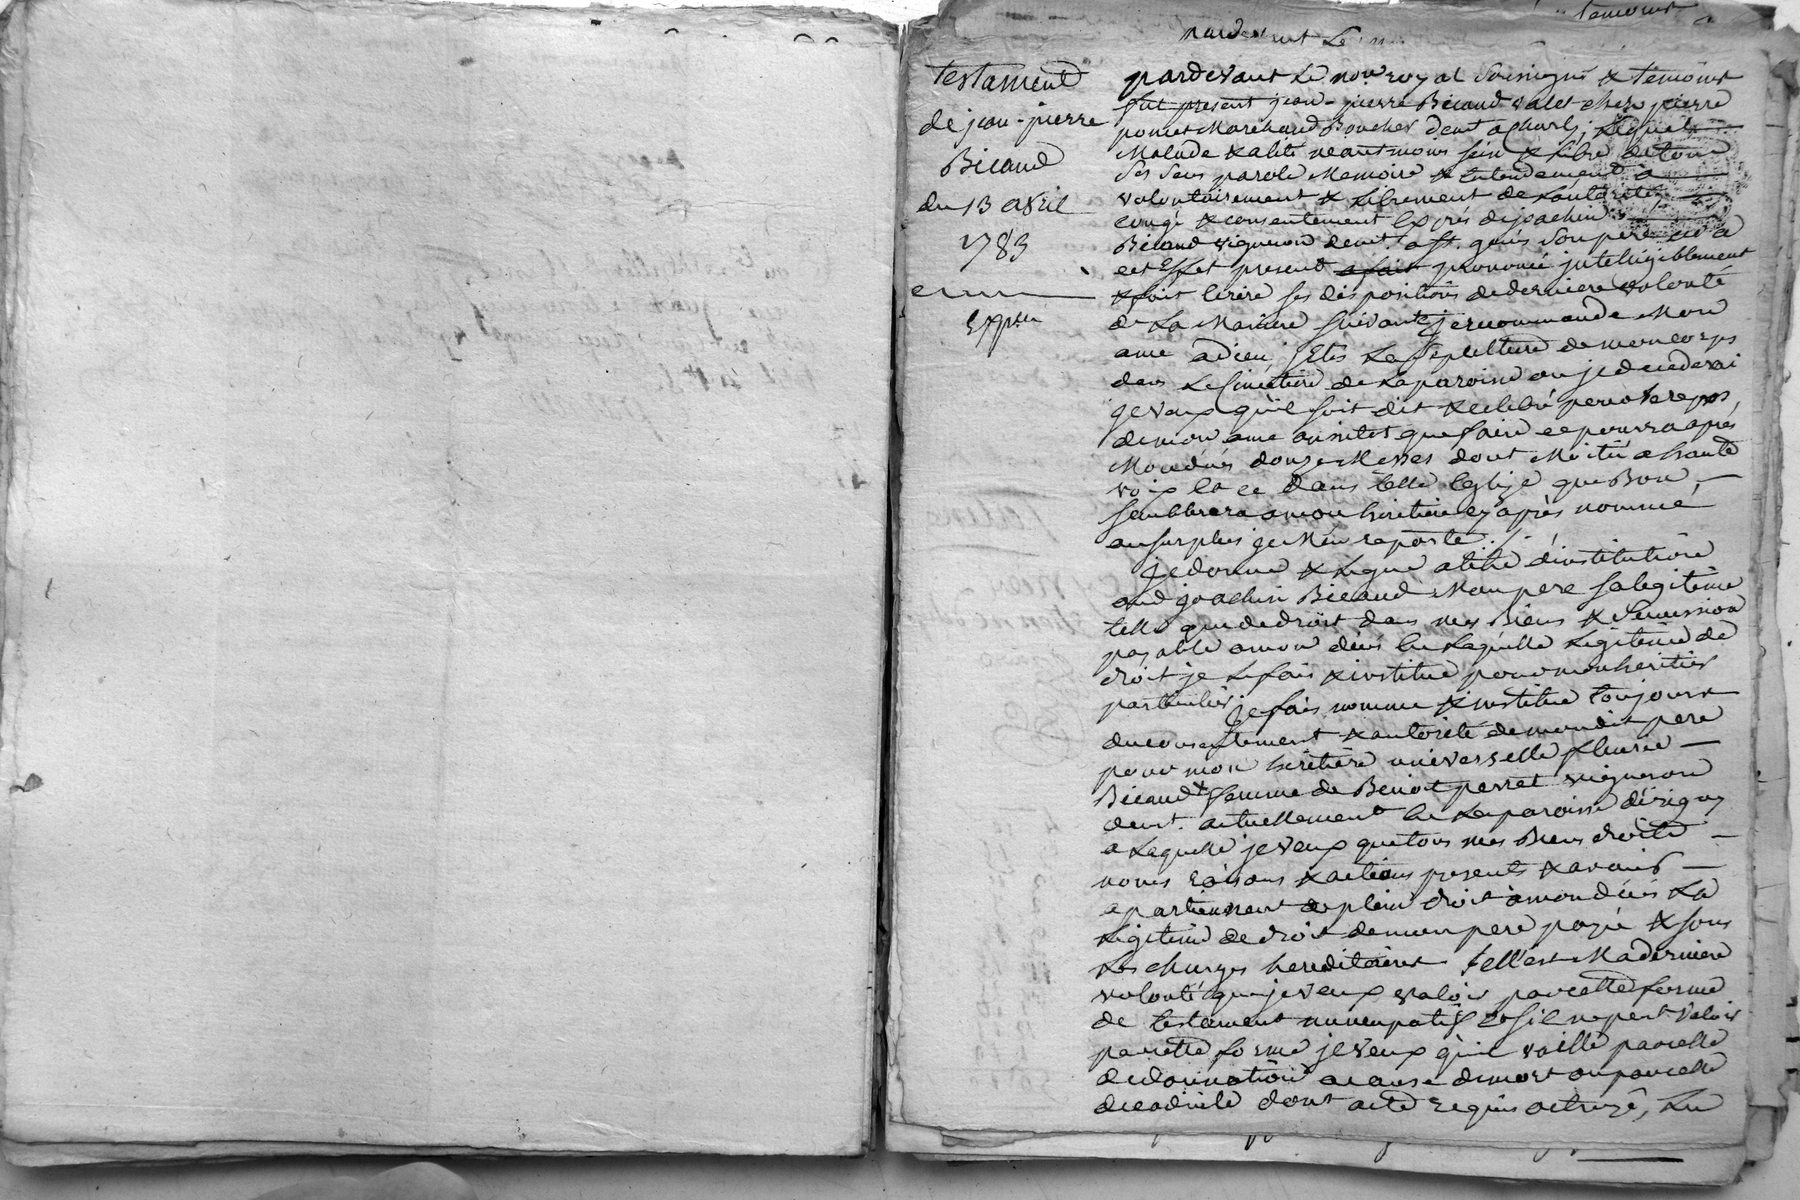 temoins
pardevant Le
testament
de jean-pierre
Bicaud
du 13 avril
1783
Expée
pardevant Le no.re royal soussigné & temoins
fut present jean-pierre Bicaud valet chez pierre
poncet Marchand Boucher demt a Charly; Lequel
Malade & alité neantmoins sein & libre de tous
ses sens parole Memoire & Entendement a
volontairement & Librement de Lautorité
congé & consentement Exprés de joachin
Bicaud vigneron demt a st. genis son pere
cet Effet present a fait prononcé jntelligiblement
& fait Ecrire ses dispositions de derniere volonté
de La Maniere suivante, je recommande Mon
ame adieu, Elis La sepulture de mon corps
dans Le simetiere de La paroisse ou je decederai
je veux qu'il soit dit & celebré pour Le repos
de mon ame aussitot que faire ce pourra aprés
Mon decés douze Messes dont Moitié a haute
voix Et ce dans telle Eglise que Bon
semblera a mon heritiere cy aprés nommé,
au surplus je M'en raporte ./.
Je donne & Legue a titre d'institution
aud joachin Bicaud Mon pere sa legitime
telle que de droit dans mes Biens & succession
payable a mon décés En Laquelle Legitime de
droit je Le fais & institue pour mon heritier
particulier, Je fais nomme & institue toujours
du consentement & autorité de mondit pere
pour mon heritiere universelle
Bicaud femme de Benoit perret vigneron
demt. actuellement En La paroisse d'irigny
a Laquelle je veux que tous mes Biens droits
noms raisons & actions presents & avenir
apartiennent de plein droit à mon décés La
Legitime de droit de mon pere payé & sous
Les charges hereditaires telle est Ma derniere
volonté que je veux valoir par cette forme
de testament nuncupatif Et s'il ne peut valoir
par cette forme je veux qu'il vaille par celle
de donnation a cause de mort ou par celle
de codicile dont acte requis octroyé, Lu